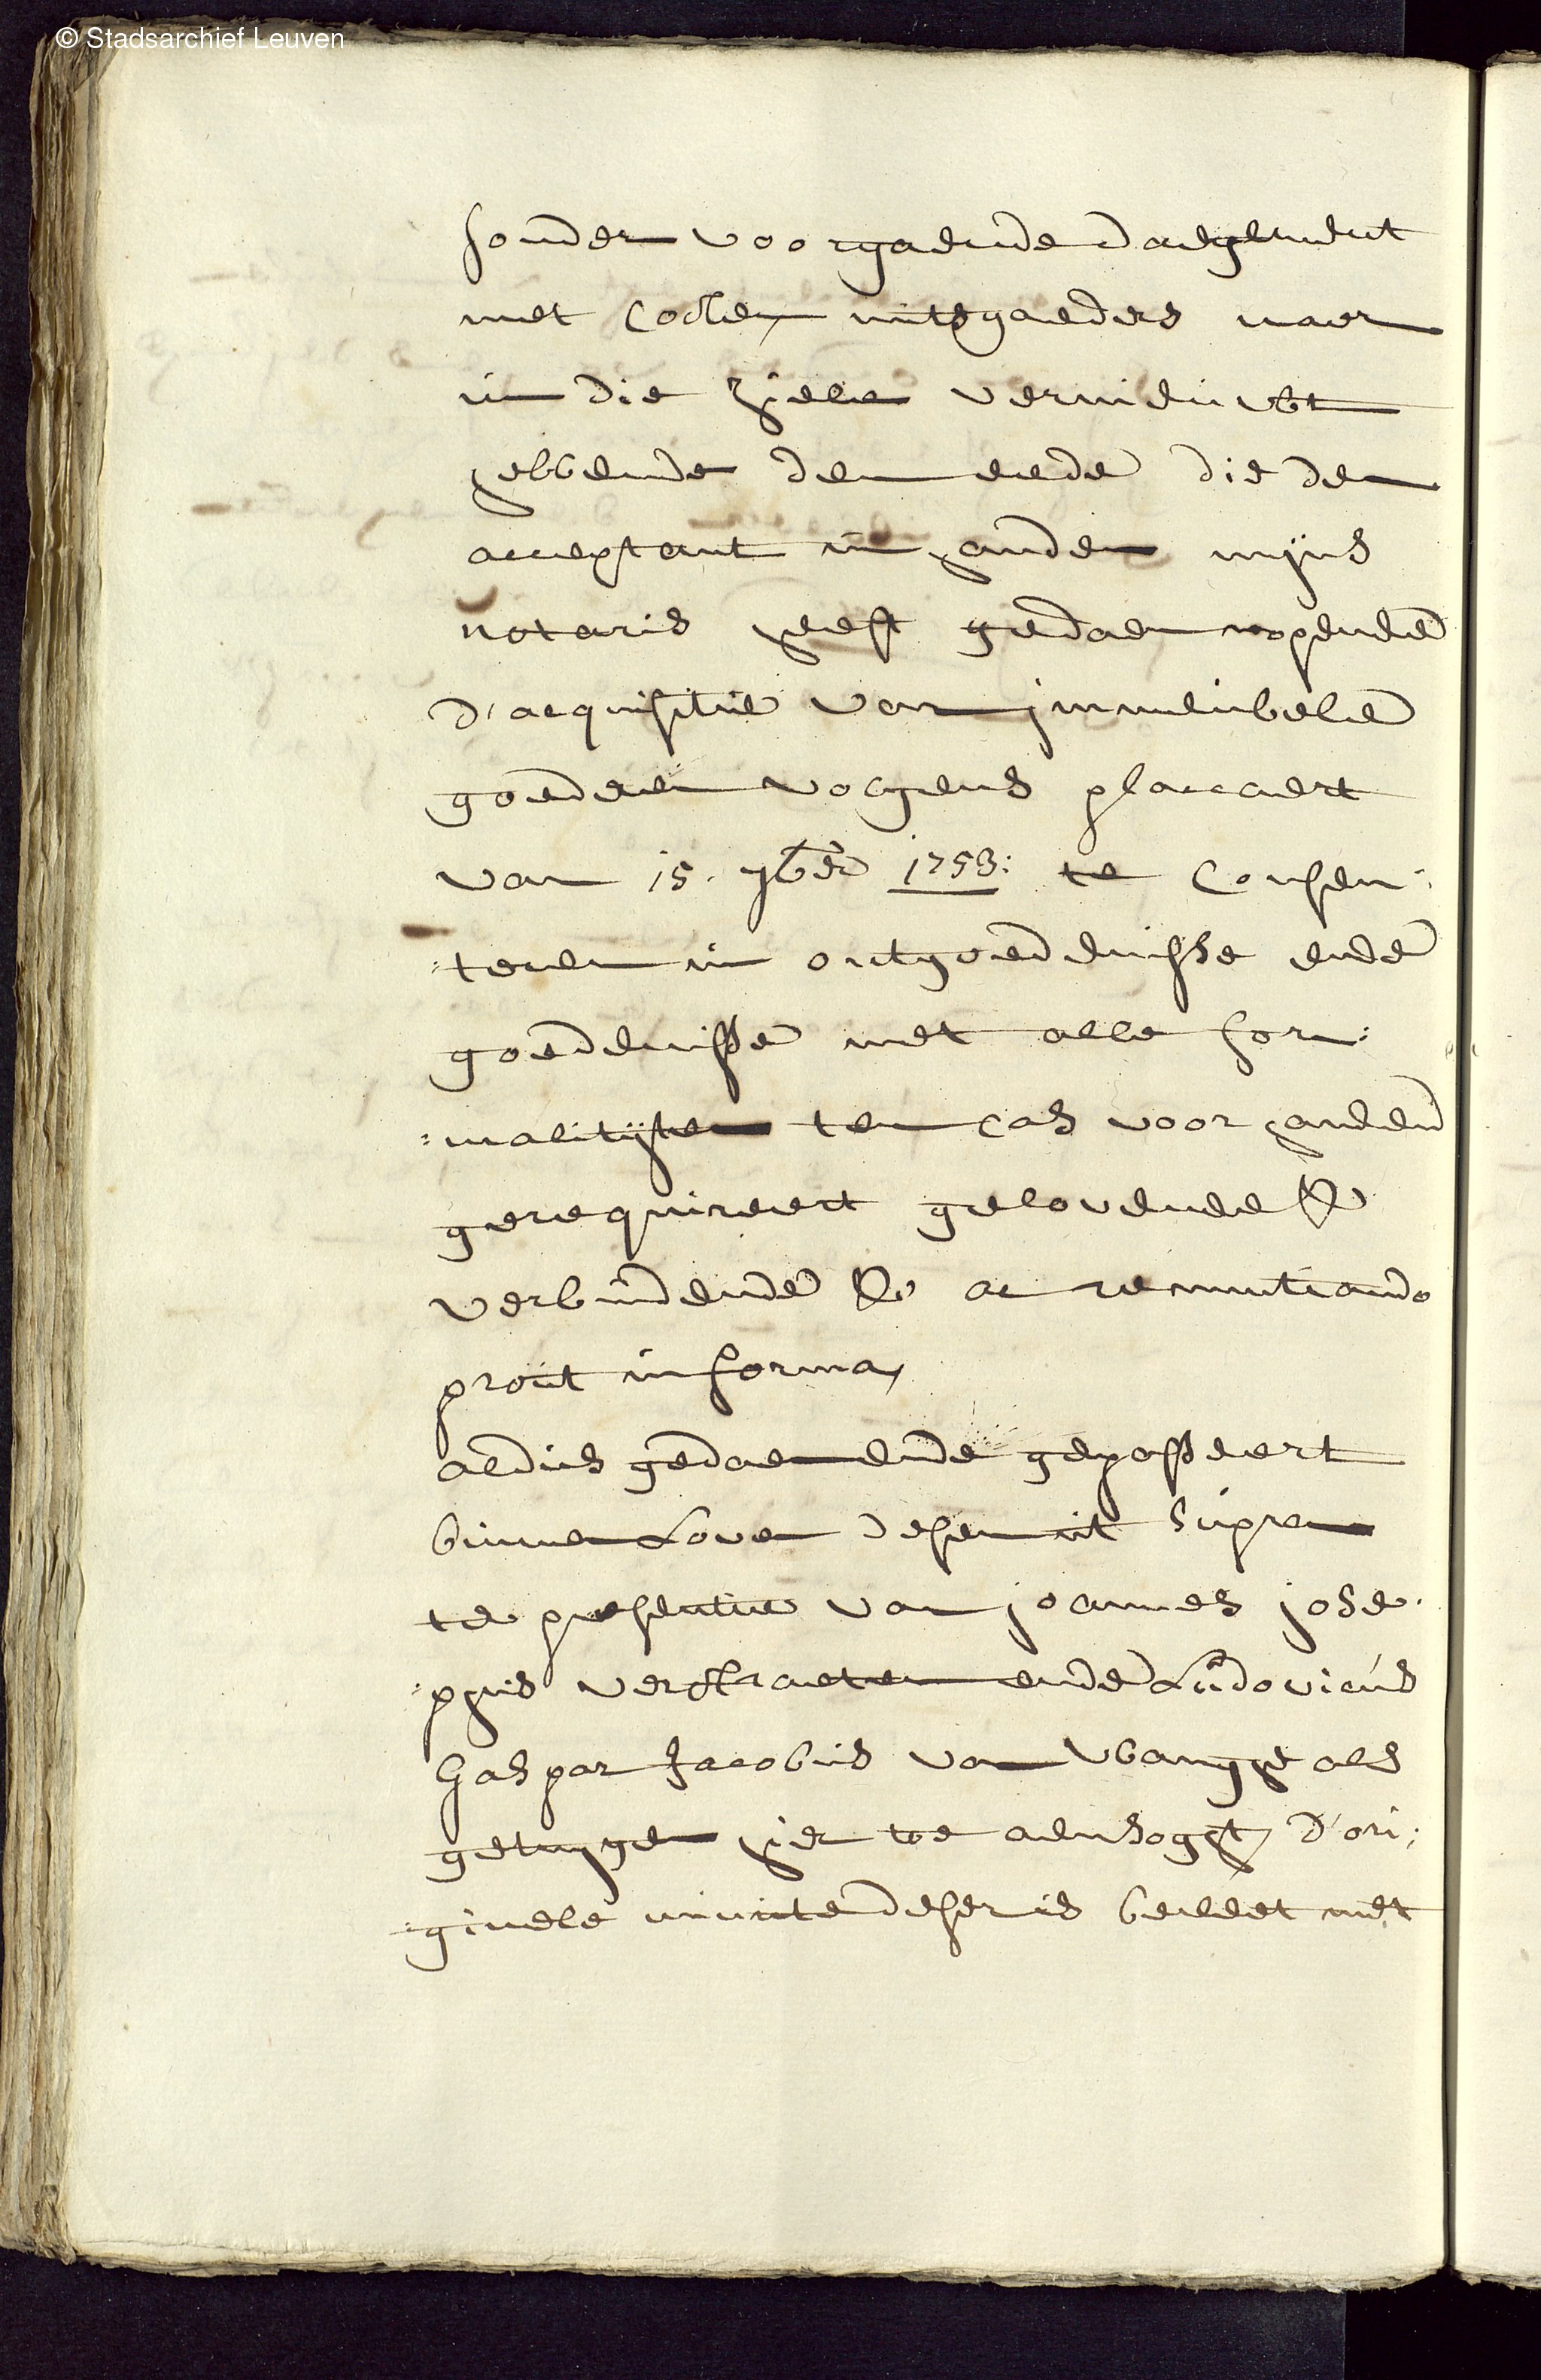 © Stadsarchief Leuven
sonder voorgaende daegement
met costen mitsgaeders naer
in die ziele vernieuwt
hebbende den eede die den
acceptant in handen mijns
notaris heeft gedaen nopende
d'acquisitie van immeubele
goederen volgens placcaert
van 15. 7ber 1753: te consen:
:teren in ontgoedenisse ende
goedenisse met alle for:
:malitijten ten cas voorhanden
gerequireert gelovende &
verbindende & ac renuntiando
prout in forma,
aldus gedaen ende gepasseert
binnen Loven desen ut supra
te presentie van joannes jose:
:phus verstraeten ende Ludovicus
Gaspar Jacobus van Wanghe als
getuygen hier toe aensoght, d'ori:
:ginele minute deser is becleet met